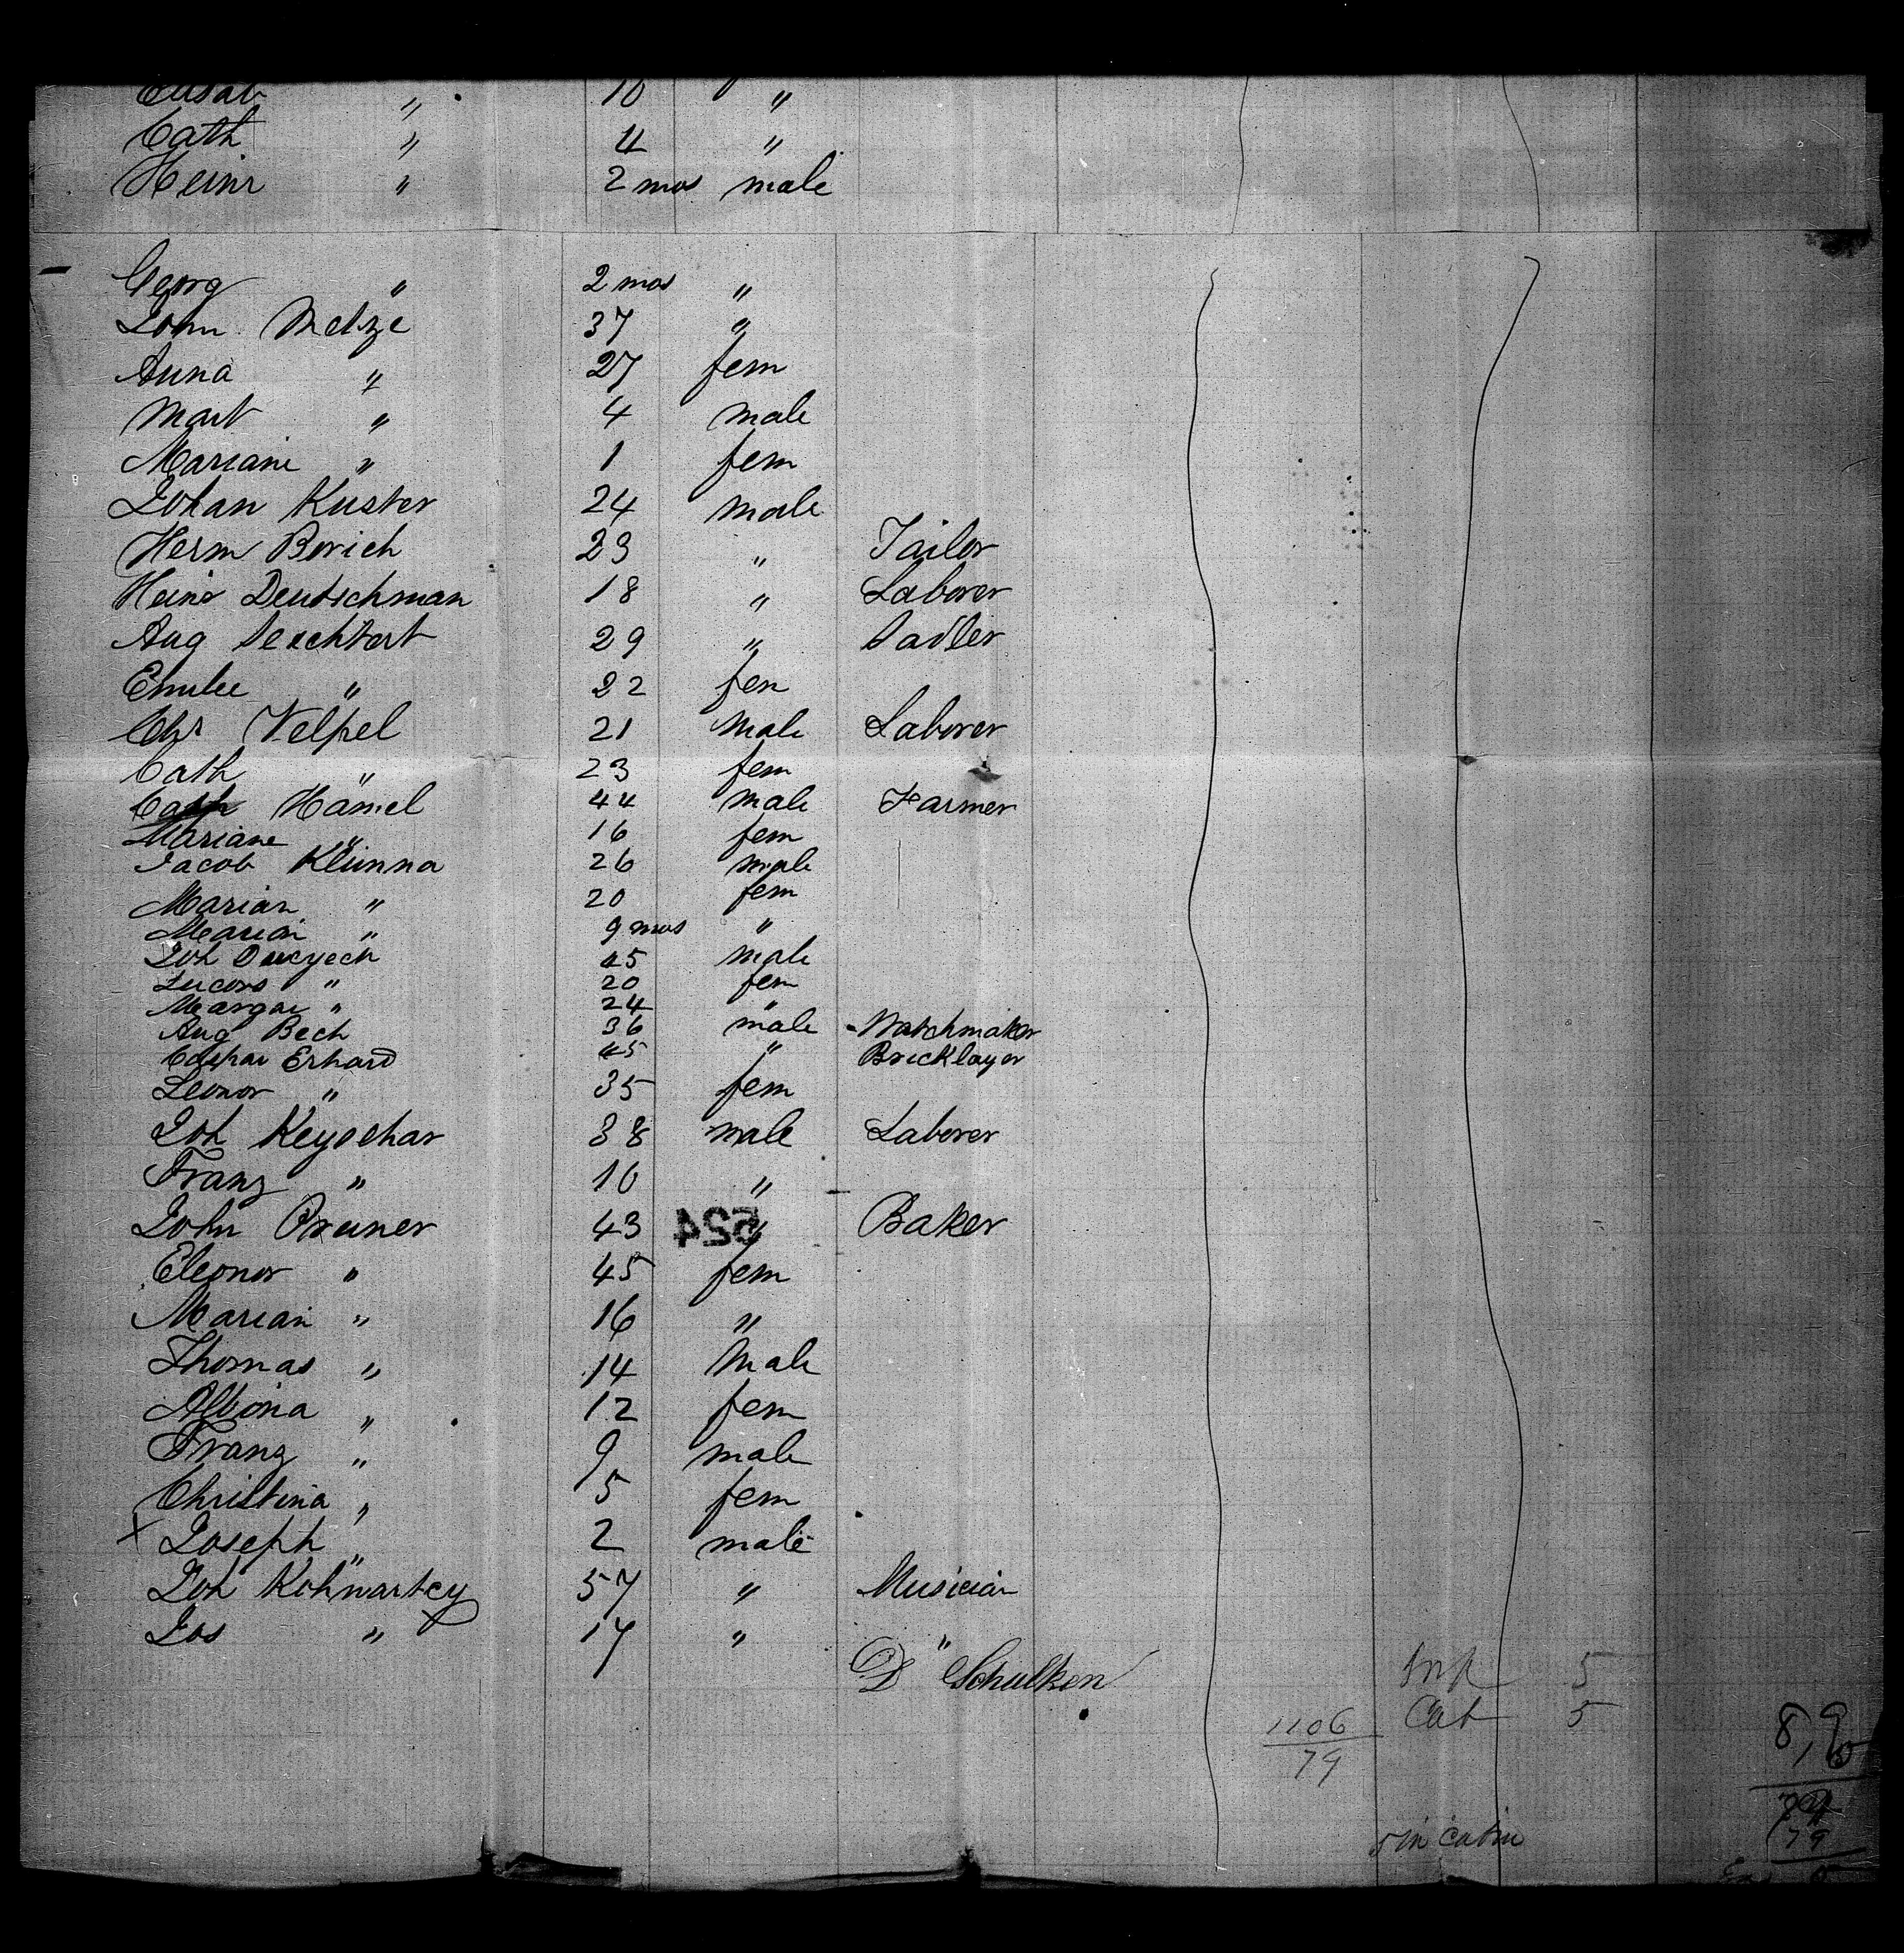 Elisab " 10 "
Cath " 4 "
Heinr " 2 mos male
Georg " 2 mos "
John Metze 37 "
Anna " 27 fem
Mart " 4 male
Mariane " 1 fem
Johan Kuster 24 male
Herm Borich 23 " Tailor
Heinr Deutschman 18 " Laborer
Aug Seichtert 29 " Sadler
Emilie " 22 fem
Chr Velpel 21 male Laborer
Cath " 23 fem
Hamel 44 male Farmer
Mariane " 16 fem
Jacob Klunna 26 male
Marian " 20 fem
Marian " 9 mos "
Joh 45 male
" 20 fem
Margar " 24 "
Aug Bech 36 male Watchmaker
Caspar Erhard 45 " Bricklayer
Leonor " 35 fem
Joh Keyschar 38 male Laborer
Franz " 10 "
John Pruner 43 " Baker
524
Eleonor " 45 fem
Marian " 16 "
Thomas " 14 Male
Albina " 12 fem
Franz " 9 male
Christina " 5 fem
x Joseph " 2 male
Joh Kohwartcy 57 " Musician
Jos " 17 " "
D Schulken
Inf 5
1106 Cab 5
79
5 in Cabin
79